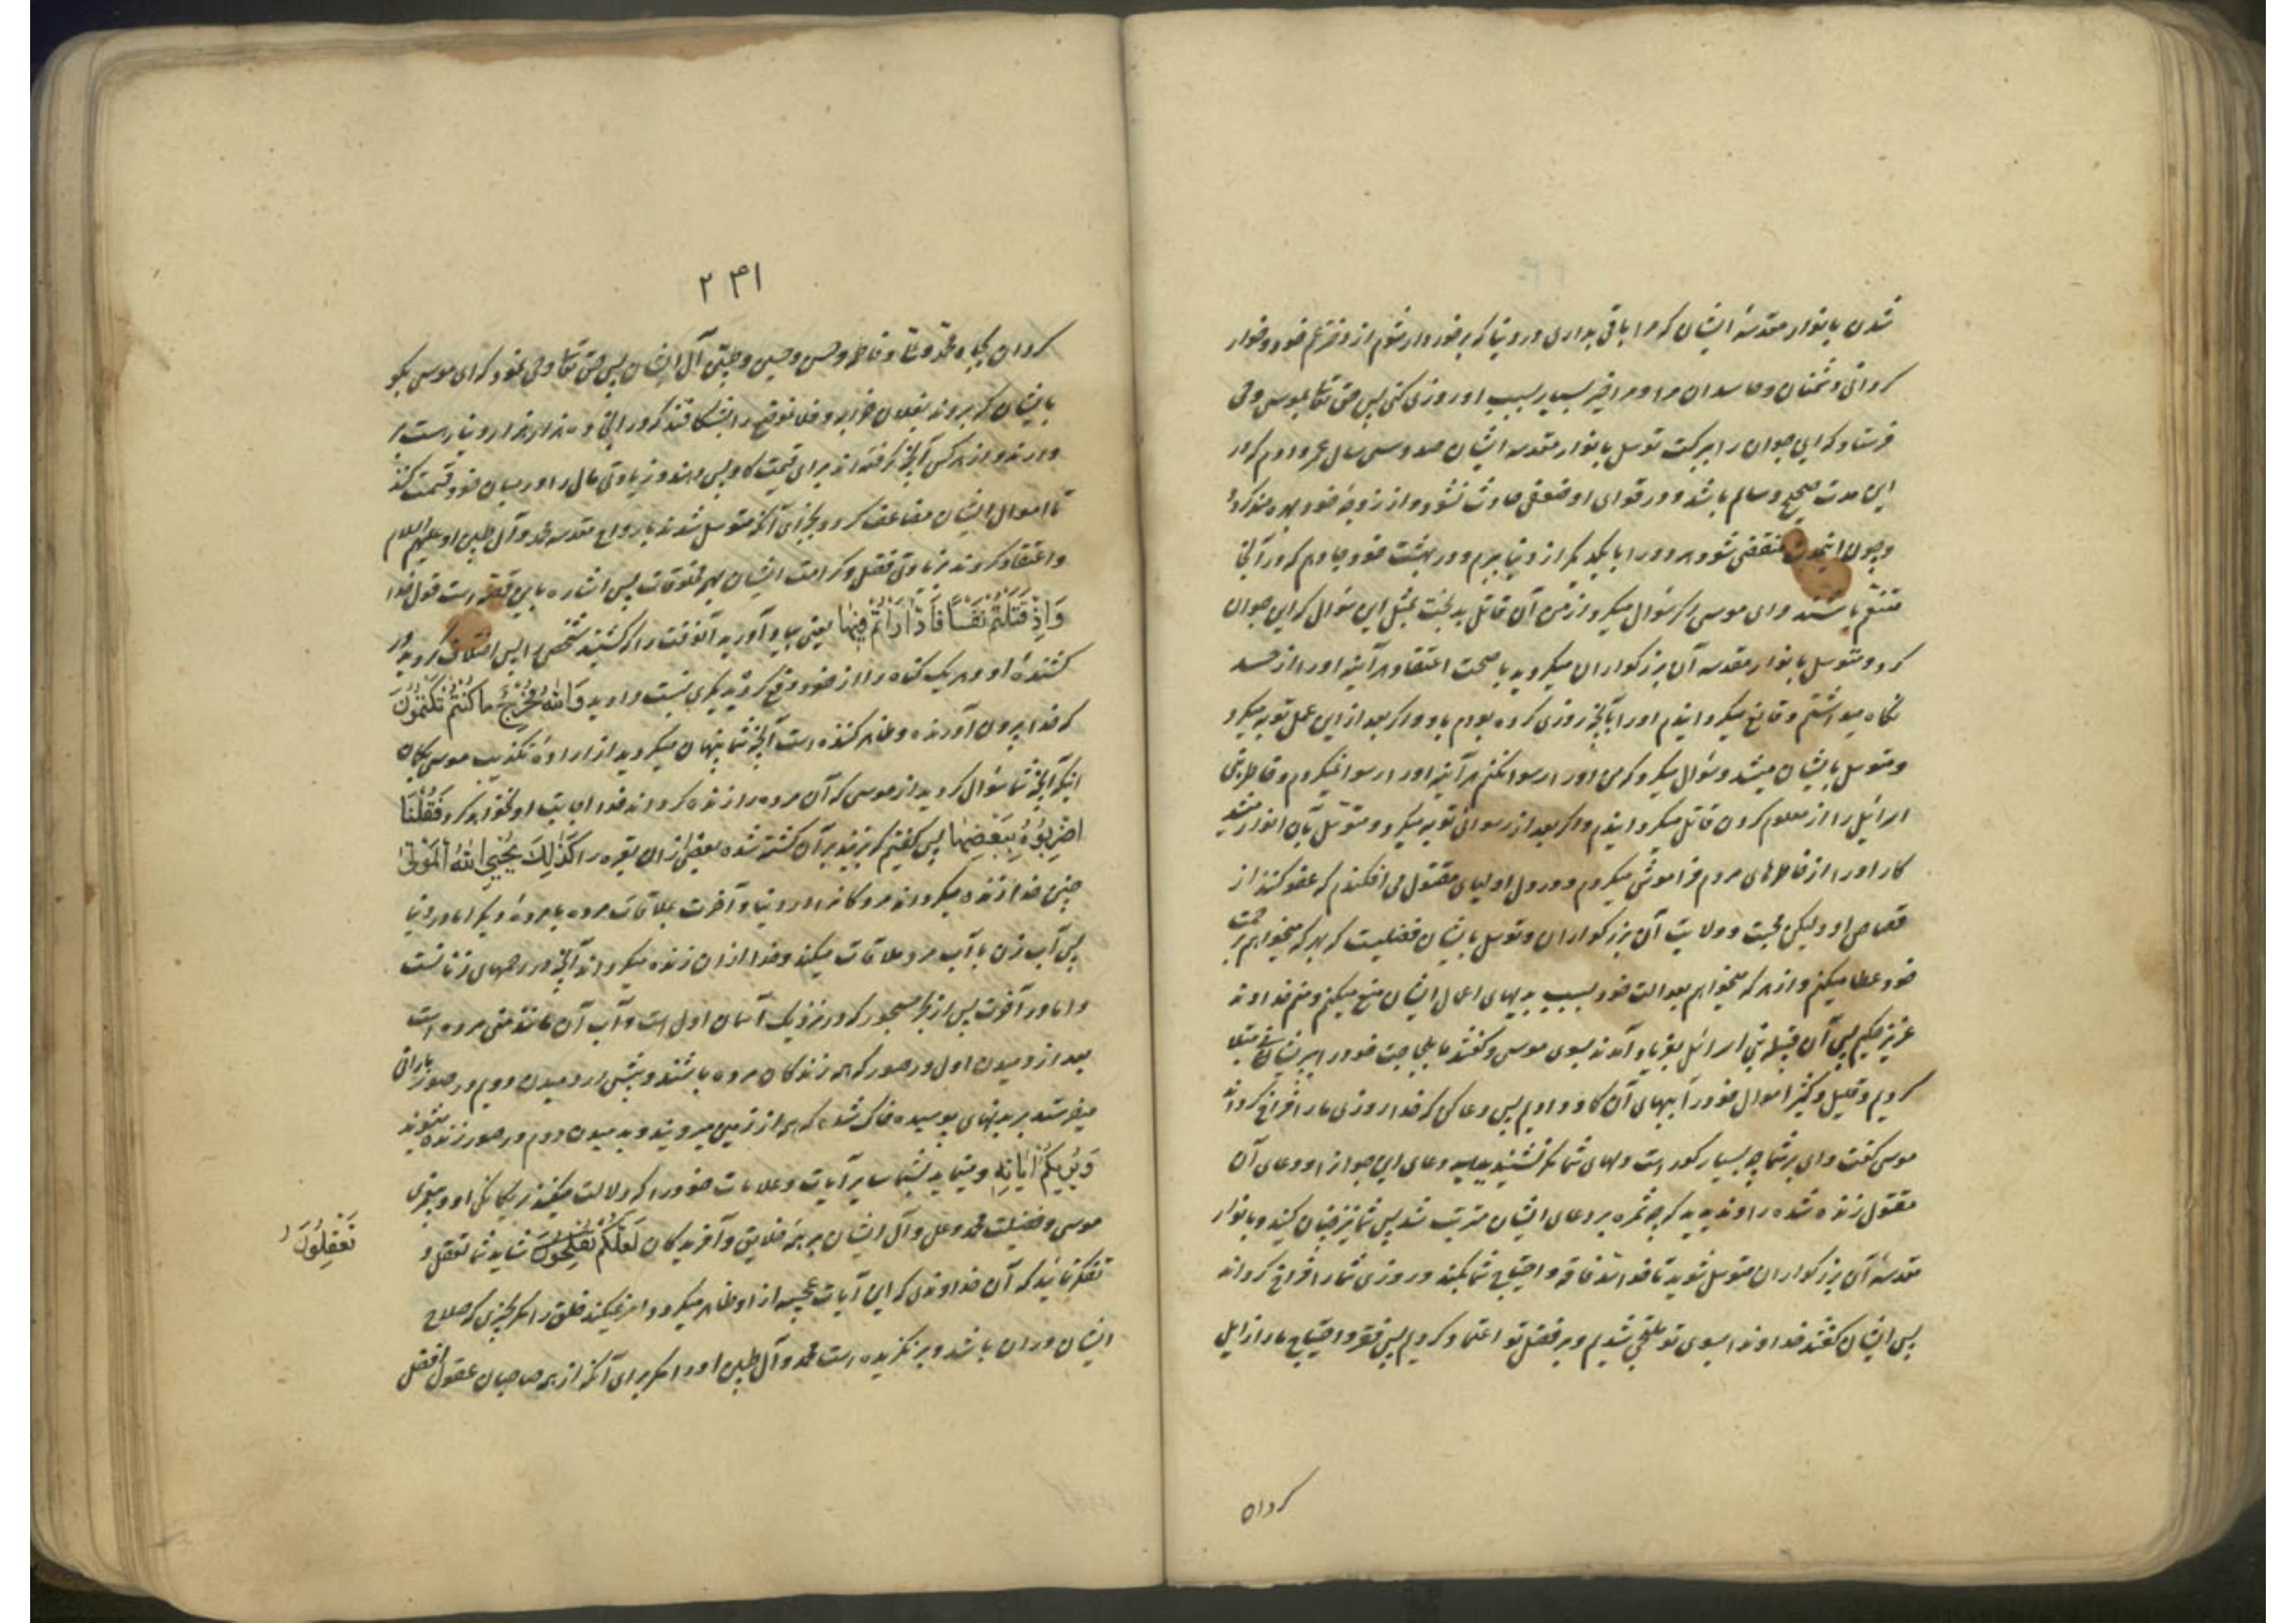 شدن بانوار مقدسهٔ ایشان که مرا باقی بداری در دنیا که برخوردار شوم از دختر عم خود و خوار
گردانی دشمنان و حاسدان مرا و مرا خیر بسیار بسبب او روزی کنی پس حق تعالی بموسی وحی
فرستاد که این جوان را ببرکت توسل بانوار مقدسه ایشان صد و سی سال عمر دادم که در
این مدت صحیح و سالم باشد و در قوای او ضعفی حادث نشود و از زوجهٔ خود بهره مند گردد
و چون اینمدت منقضی شود هر دو را با یکدیگر از دنیا ببرم و در بهشت خود جا دهم که در آنجا
متنعم باشند و ای موسی اگر سئوال میکرد از من آن قاتل بدبخت بمثل این سئوال که این جوان
کرد و متوسل بانوار مقدسه آن بزرگواران میگردید با صحت اعتقاد هر آینه او را از حسد
نگاه میداشتم و قانع میگردانیدم او را بآنچه روزی کرده بودم باو و اگر بعد از این عمل توبه میکرد
و متوسل بایشان میشد و سئوال میکرد که من او را رسوا نکنم هر آینه او را رسوا نمیکردم و خاطر بنی
اسرائیل را از معلوم کردن قاتل میگردانیدم و اگر بعد از رسوائی توبه میکرد و متوسل بآن انوار میشد
کار او را از خاطرهای مردم فراموش میکردم و در دل اولیای مقتول می افکندم که عفو کنند از
قصاص او و لیکن محبت و ولایت آن بزرگواران و توسل بایشان فضلیست که بهر که میخواهم برحمت
خود عطا میکنم و از هر که میخواهم بعدالت خود بسبب بدیهای اعمال ایشان منع میکنم و منم خداوند
عزیز حکیم پس آن قبیلهٔ بنی اسرائیل بفریاد آمدند بسوی موسی و گفتند ما بلجاجت خود را بپریشانی مبتلا
کردیم و قلیل و کثیر اموال خود را ببهای آن گاو دادیم پس دعا کن که خدا روزی ما را فراخ گرداند
موسی گفت وای بر شما چه بسیار کور است دلهای شما مگر نشنیدید دعای این جوان را و دعای آن
مقتول زنده شده را و ندیدید که چه ثمره بر دعای ایشان مترتب شد پس شما نیز چنان کنید و بانوار
مقدسهٔ آن بزرگواران متوسل شوید تا خدا سد فاقه و احتیاج شما بکند و روزی شما را فراخ گرداند
پس ایشان گفتند خداوندا بسوی تو ملتجی شدیم و بر فضل تو اعتماد کردیم پس فقر و احتیاج ما را زایل
گردان
۲۴۱
گردان بجاه محمد و علی و فاطمه و حسن و حسین و طیبین آل ایشان پس حق تعالی وحی نمود که ای موسی بگو
بایشان که بروند بفلان خرابه و فلان موضع را بشکافند که در آنجا ده هزار هزار دینار است بر
دارند و از هر کس آنچه گرفته اند برای قیمت گاو پس دهند و زیادتی مال را در میان خود قسمت کنند
تا اموال ایشان مضاعف گردد بجزای آنکه متوسل شدند بارواح مقدسه محمد و آل طیبین او علیهم السلام
و اعتقاد کردند بزیادتی فضل و کرامت ایشان بهر مخلوقات پس اشاره باین قصه است قول خدا
وَاِذْ قَتَلْتُمْ نَفْسًا فَادّٰارَاْتُمْ فِیهٰا یعنی بیاد آورید آنوقت را که کشتید شخصی را پس اختلاف کردید در
کشندهٔ او و هر یک گناه را از خود دفع کرده بدیگری نسبت دادید وَاللّٰهُ مُخْرِجٌ ما کُنْتُمْ تَکْتُمُونَ
که خدا بیرون آورنده و ظاهر کننده است آنچه شما پنهان میکردید از ارادهٔ تکذیب موسی بگمان
اینکه آنچه شما سئوال کردید از موسی که آن مرده را زنده گرداند خدا اجابت او نخواهد کرد فَقُلْنٰا
اضْرِبُوهُ بِبَعْضِهٰا پس گفتیم که بزنید بر آن کشته شده بعضی از آن بقره را کَذٰلِکَ یُحْیِی اللّٰهُ الْمَوْتیٰ
چنین خدا زنده میگرداند مردگان را در دنیا و آخرت بملاقات مرده با مردهٔ دیگر اما در دنیا
پس آب زن با آب مرد ملاقات میکند و خدا از آن زنده میگرداند آنچه در رحمهای زنانست
و اما در آخرت پس از بحر مسجور که در نزدیک آسمان اول است و آب آن مانند منی مرد است
بعد از دمیدن اول در صور که همه زندگان مرده باشند و پیش از دمیدن دویم در صور بارانی
میفرستد بر بدنهای پوسیده خاک شده که همه از زمین میرویند و بدمیدن دوم در صور زنده میشوند
وَیُرِیکُمْ آیٰاتِهِ و مینماید بشما سایر آیات و علامات خود را که دلالت میکند بر یگانگی او و پیغمبری
موسی و فضیلت محمد و علی و آل ایشان بر همهٔ خلایق و آفریدگان لَعَلَّکُمْ تُفْلِحُونَ شاید شما تعقل و
تَعْقِلُونَ
تفکر نمائید که آن خداوندی که این آیات عجیبه از او ظاهر میگردد امر نمیکند خلق را مگر بچیزی که صلاح
ایشان در آن باشد و برنگزیده است محمد و آل طیبین او را مگر برای آنکه از همه صاحبان عقول افضل